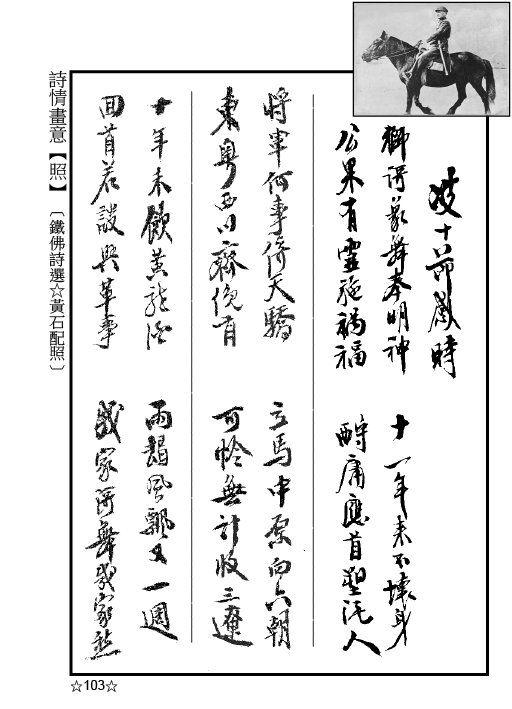 詩情畫意【照】〔鐵佛詩選☆黃石配照〕
十節感時
奉明神 十一年来不壞身
公果有靈施禍福 酬庸應首塑泥人
將軍何事倚天驕 立馬中原向六朝
東粵西川齊俛首 可憐無計收三遼
十年未飲黃龍酒 雨風飄又一週
回首若談興革事 幾家歌舞幾家愁
☆103☆